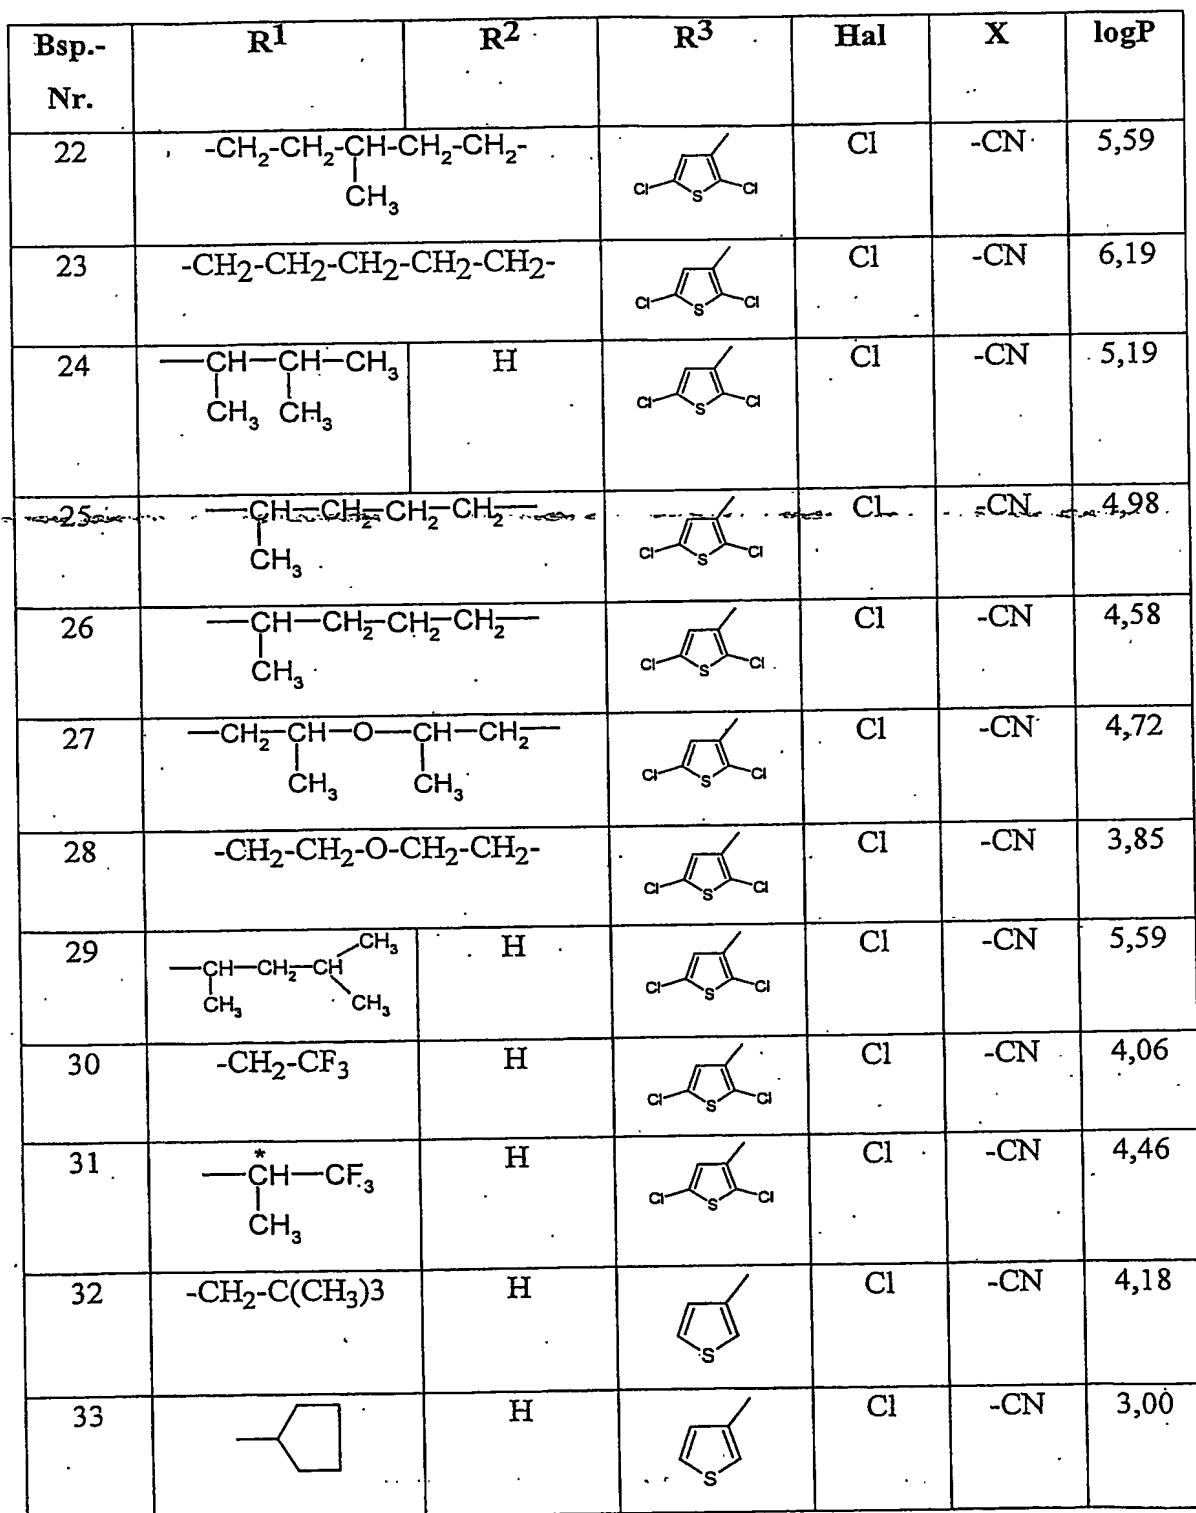 Bsp.-Nr. R1 R2 R3 Hal X logP
22 -CH2-CH2-CH-CH2-CH2- Cl S Cl Cl -CN 5,59
CH3
23 -CH2-CH2-CH2-CH2-CH2- Cl S Cl Cl -CN 6,19
24 —CH—CH—CH3 H Cl S Cl Cl -CN 5,19
CH3 CH3
25 —CH—CH2—CH2—CH2— Cl S Cl Cl -CN 4,98
CH3
26 —CH—CH2—CH2—CH2— Cl S Cl Cl -CN 4,58
CH3
27 —CH2—CH—O—CH—CH2— Cl S Cl Cl -CN 4,72
CH3 CH3
28 -CH2-CH2-O-CH2-CH2- Cl S Cl Cl -CN 3,85
29 —CH—CH2—CH CH3 H Cl S Cl Cl -CN 5,59
CH3 CH3
30 -CH2-CF3 H Cl S Cl Cl -CN 4,06
31 —*CH—CF3 H Cl S Cl Cl -CN 4,46
CH3
32 -CH2-C(CH3)3 H S Cl -CN 4,18
33 H S Cl -CN 3,00